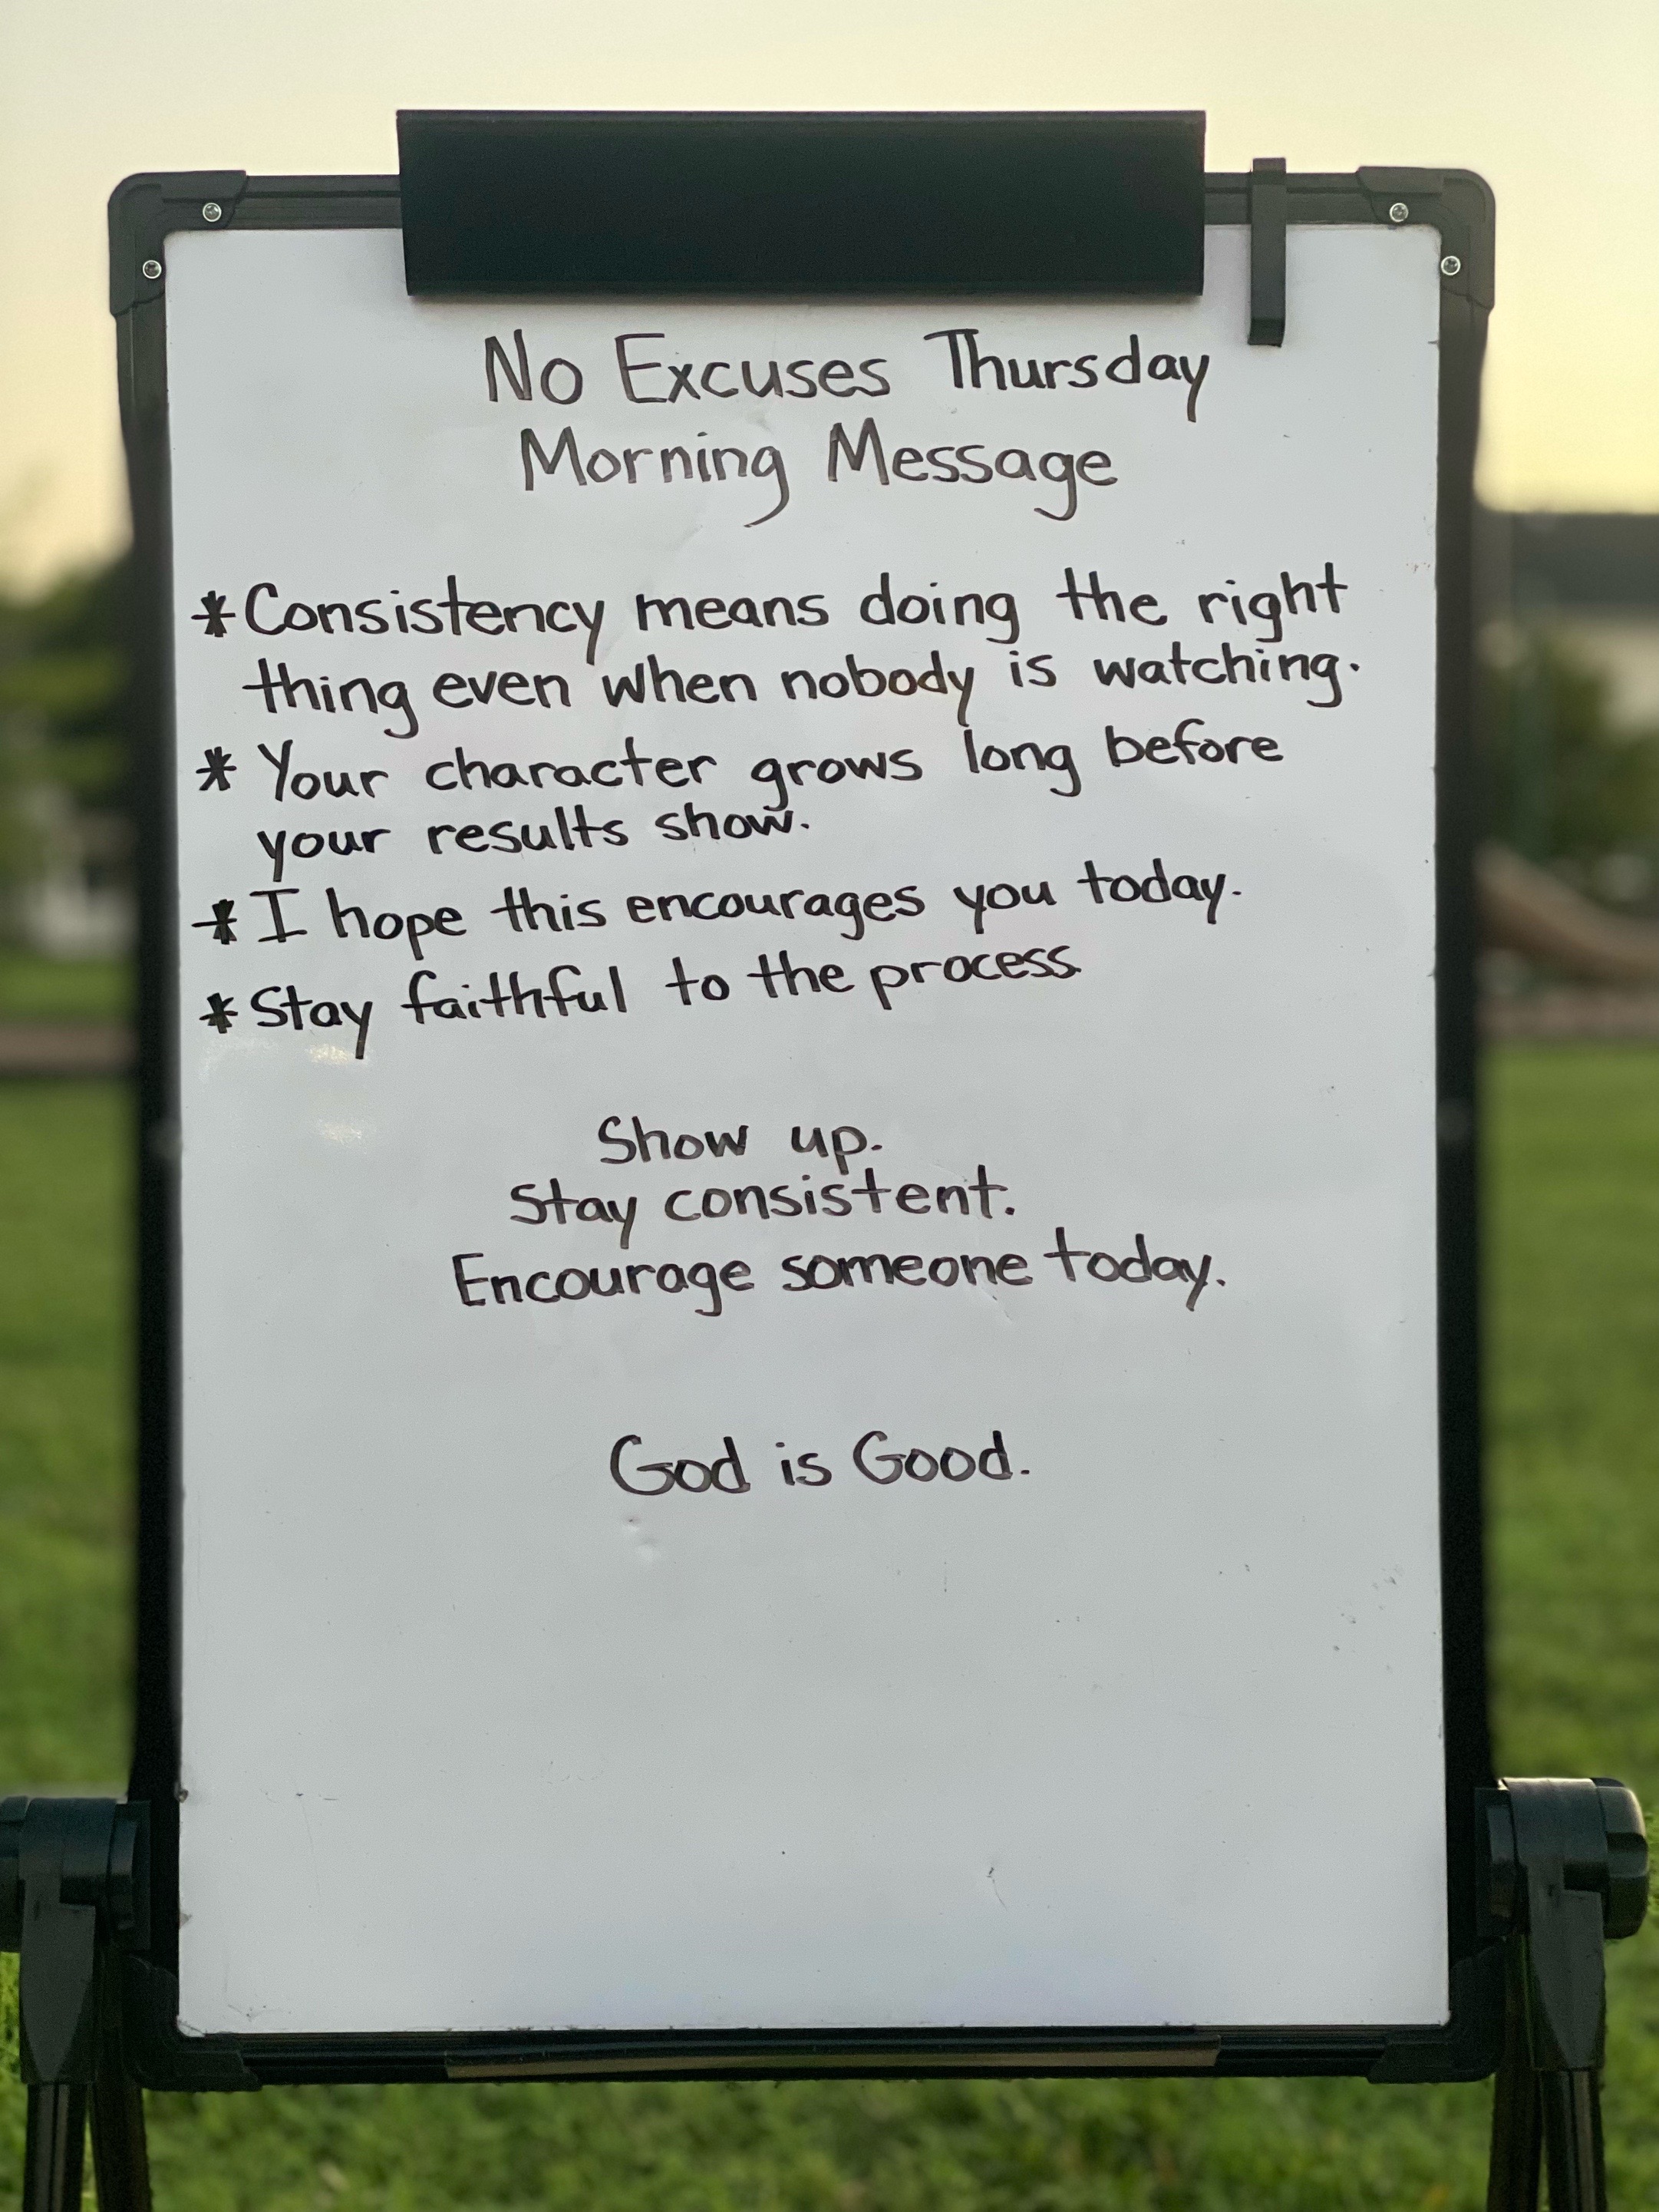 No Excuses Thursday
Morning Message
*Consistency means doing the right
thing even when nobody is watching.
* Your character grows long before
your results show.
*I hope this encourages you today.
*Stay faithful to the process.
Show up.
Stay consistent.
Encourage someone today.
God is Good.